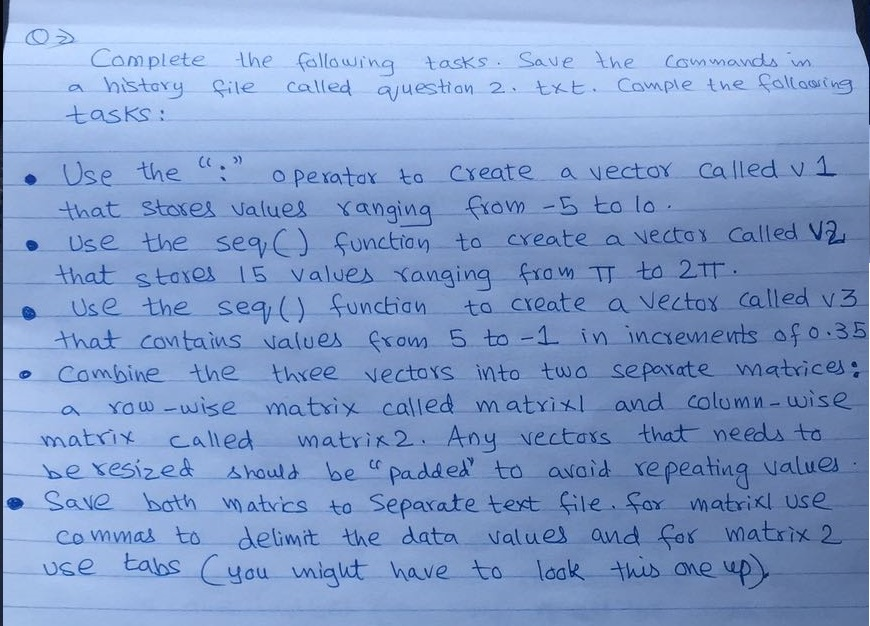 Q 2>
Complete the following tasks. Save the commands in
a history file called question 2. txt. Comple the following
tasks :
• Use the ":" operator to create a vector called v 1
that stores values ranging from -5 to 10.
• Use the seq() function to create a vector called V2
that stores 15 values ranging from π to 2π.
• Use the seq() function to create a vector called v3
that contains values from 5 to -1 in increments of 0.35
• Combine the three vectors into two separate matrices:
a row-wise matrix called matrix1 and column-wise
matrix called matrix2. Any vectors that needs to
be resized should be "padded" to avoid repeating values.
• Save both matrics to Separate text file. for matrix1 use
commas to delimit the data values and for matrix 2
use tabs (you might have to look this one up).